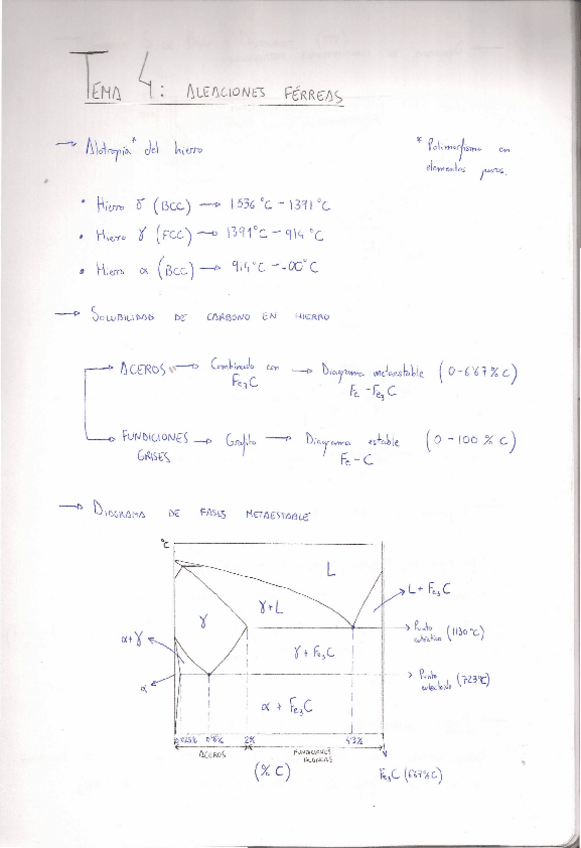 TEMA 4: ALEACIONES FÉRREAS
→ Alotropía* del hierro
* Polimorfismo en
elementos puros.
• Hierro δ (BCC) → 1536 °C - 1391 °C
• Hierro γ (FCC) → 1391°C - 914 °C
• Hierro α (BCC) → 914°C - -00°C
→ SOLUBILIDAD DE CARBONO EN HIERRO
→ ACEROS → Combinado con → Diagrama metaestable (0-6'67% C)
Fe₃C Fe - Fe₃C
→ FUNDICIONES → Grafito → Diagrama estable (0 - 100 % C)
GRISES Fe - C
→ DIAGRAMA DE FASES METAESTABLE
°C
L
L + Fe₃C
γ+L
γ
Punto
eutéctico (1130°C)
α+γ
γ + Fe₃C
Punto
eutectoide (723°C)
α
α + Fe₃C
0'025% 0'8% 2% 4'3%
ACEROS FUNDICIONES
BLANCAS
(% C)
Fe₃C (6'67% C)